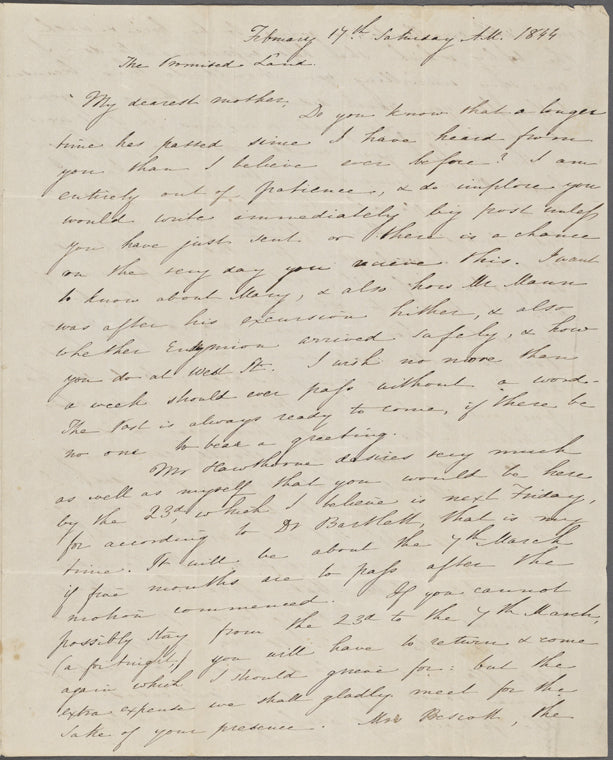 February 17th Saturday A.M. 1844
The Promised Land.
My dearest mother,
Do you know that a longer
time has passed since I have heard from
you than I believe ever before? I am
entirely out of patience, & do implore you
would write immediately by post unless
you have just sent or there is a chance
on the very day you receive this. I want
to know about Mary, & also how Mr Mann
was after his excursion hither, & also
whether Endymion arrived safely, & how
you do at West St. I wish no more than
a week should ever pass without a word.
The Post is always ready to come, if there be
no one to bear a greeting.
Mr Hawthorne desires very much
as well as myself that you would be here
by the 23d, which I believe is next Friday,
for according to Dr Bartlett, that is my
time. It will be about the 7th March
if five months are to pass after the
motion commenced. If you cannot
possibly stay from the 23d to the 7th March,
(a fortnight,) you will have to return & come
again which I should grieve for: but the
extra expense we shall gladly meet for the
sake of your presence. Mrs Prescott, the